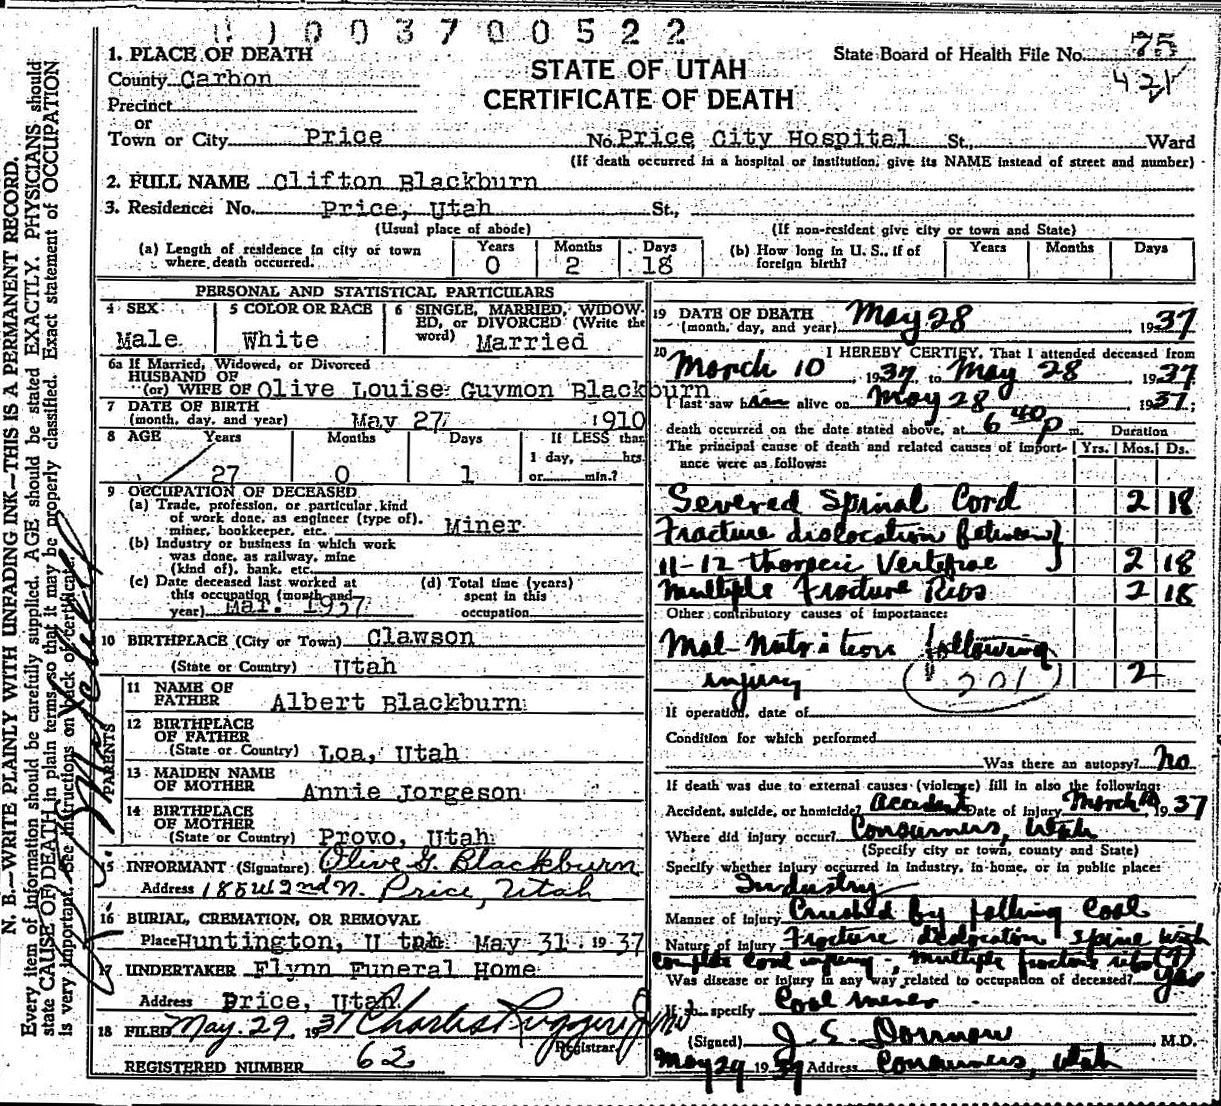 0 0 3 7 0 0 5 2 2
1. PLACE OF DEATH
County Carbon
Precinct
or
Town or City Price
STATE OF UTAH
CERTIFICATE OF DEATH
State Board of Health File No. 75
421
No. Price City Hospital St., Ward
(If death occurred in a hospital or institution, give its NAME instead of street and number)
2. FULL NAME Clifton Blackburn
3. Residence: No. Price, Utah St.,
(Usual place of abode) (If non-resident give city or town and State)
(a) Length of residence in city or town where death occurred. Years 0 Months 2 Days 18
(b) How long in U. S., if of foreign birth? Years Months Days
PERSONAL AND STATISTICAL PARTICULARS
4 SEX Male
5 COLOR OR RACE White
6 SINGLE, MARRIED, WIDOWED, or DIVORCED (Write the word) Married
6a If Married, Widowed, or Divorced
HUSBAND OF
(or) WIFE OF Olive Louise Guymon Blackburn
7 DATE OF BIRTH
(month, day, and year) May 27 1910
8 AGE Years 27 Months 0 Days 1 If LESS than 1 day, hrs. or min.?
9 OCCUPATION OF DECEASED
(a) Trade, profession, or particular kind
of work done, as engineer (type of),
miner, bookkeeper, etc. Miner
(b) Industry or business in which work
was done, as railway, mine
(kind of), bank, etc.
(c) Date deceased last worked at
this occupation (month and
year) Mar. 1937
(d) Total time (years)
spent in this
occupation
10 BIRTHPLACE (City or Town) Clawson
(State or Country) Utah
PARENTS
11 NAME OF
FATHER Albert Blackburn
12 BIRTHPLACE
OF FATHER
(State or Country) Loa, Utah
13 MAIDEN NAME
OF MOTHER Annie Jorgeson
14 BIRTHPLACE
OF MOTHER
(State or Country) Provo, Utah
15 INFORMANT (Signature) Olive G. Blackburn
Address 185 W 2nd N. Price, Utah
16 BURIAL, CREMATION, OR REMOVAL
Place Huntington, Utah May 31. 1937
17 UNDERTAKER Flynn Funeral Home
Address Price, Utah
18 FILED May 29 1937 Charles Ruggeri Jr
Registrar
REGISTERED NUMBER 62
19 DATE OF DEATH
(month, day, and year) May 28 1937
20 I HEREBY CERTIFY, That I attended deceased from
March 10, 1937, to May 28 1937
I last saw him alive on May 28 1937;
death occurred on the date stated above, at 6 40 P m. Duration
The principal cause of death and related causes of importance were as follows: Yrs. Mos. Ds.
Severed Spinal Cord 2 18
Fracture dislocation between
11-12 thoracic Vertebrae 2 18
Multiple Fracture Ribs 2 18
Other contributory causes of importance:
Mal-Nutrition following
injury 2
201
If operation, date of
Condition for which performed
Was there an autopsy? No
If death was due to external causes (violence) fill in also the following:
Accident, suicide, or homicide? Accident Date of Injury March 10, 1937
Where did injury occur? Consumers, Utah
(Specify city or town, county and State)
Specify whether injury occurred in industry, in home, or in public place:
Industry
Manner of Injury Crushed by falling Coal
Nature of Injury Fracture dislocation spine with
complete cord injury - multiple fracture ribs (7)
Was disease or injury in any way related to occupation of deceased? Yes
If so, specify Coal miner
(Signed) J. E. Dorman M.D.
May 29 1937 Address Consumers, Utah
N. B.—WRITE PLAINLY WITH UNFADING INK—THIS IS A PERMANENT RECORD.
Every item of information should be carefully supplied. AGE should be stated EXACTLY. PHYSICIANS should
state CAUSE OF DEATH in plain terms, so that it may be properly classified. Exact statement of OCCUPATION
is very important. See instructions on back of certificate.